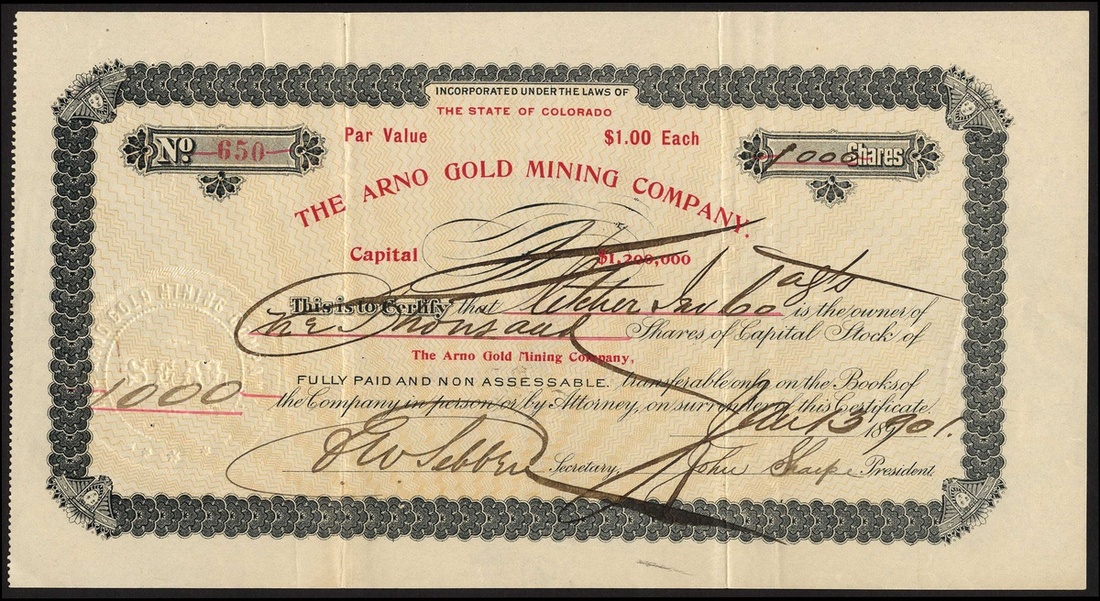 INCORPORATED UNDER THE LAWS OF
THE STATE OF COLORADO
Par Value $1.00 Each
No. 650
1000 Shares
THE ARNO GOLD MINING COMPANY.
Capital $1,200,000
This is to Certify that Fletcher Inv Co is the owner of
One Thousand Shares of Capital Stock of
The Arno Gold Mining Company,
GOLD MINING
SEAL
1000
FULLY PAID AND NON ASSESSABLE. transferable only on the Books of
the Company in person or by Attorney, on surrender of this Certificate.
13 1901.
Secretary, John Sharpe President.